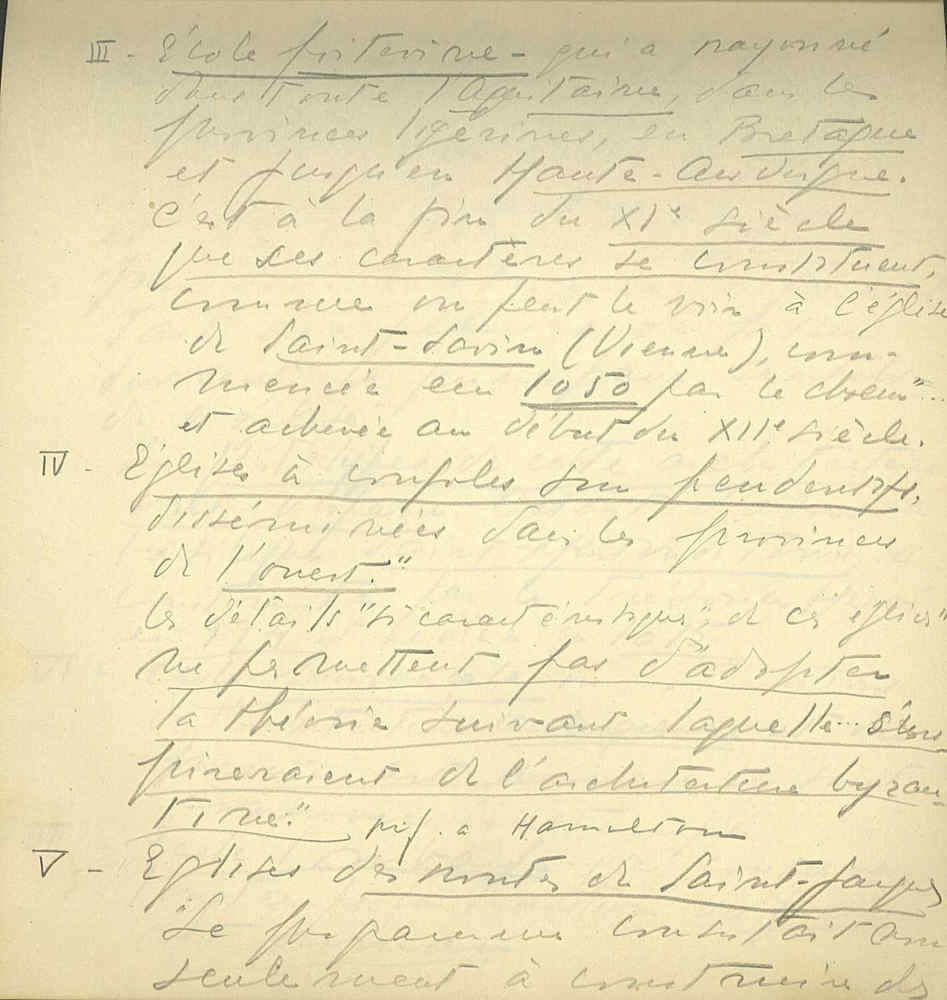 III - École poitevine - qui a rayonné
dans toute l'Aquitaine, dans les
provinces ligériennes, en Bretagne
et jusqu'en Haute-Auvergne.
C'est à la fin du XIe siècle
que ses caractères se constituent,
comme on peut le voir à l'église
de Saint-Savin (Vienne), com-
mencée en 1050 par le choeur...
et achevée au début du XIIe siècle.
IV - Églises à coupoles sur pendentifs,
disséminées dans les provinces
de l'ouest."
les détails "si caractéristiques" de ces églises"
ne permettent pas d'adopter
la théorie suivant laquelle...
pireraient de l'architecture byzan-
tine." réf. a Hamilton
V - Eglises des routes de Saint-Jacques
"Le programme consistait non
seulement à construire des